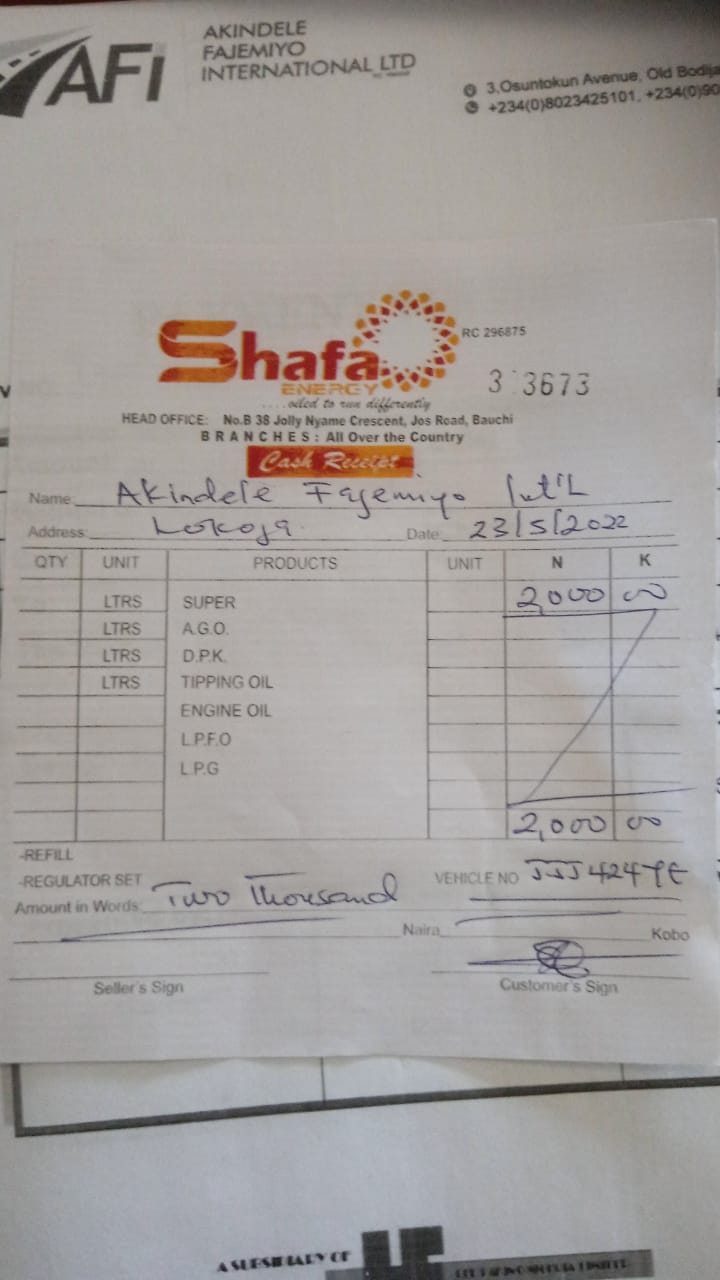 AFi
AKINDELE
FAJEMIYO
INTERNATIONAL LTD
3,Osuntokun Avenue, Old Bodija
+234(0)8023425101, +234(0)90
Shafa
ENERGY
....oiled to run differently
RC 296875
3 3673
HEAD OFFICE: No.B 38 Jolly Nyame Crescent, Jos Road, Bauchi
BRANCHES: All Over the Country
Cash Receipt
Name: Akindele Fajemiyo Int'L
Address: Lokoja. Date: 23/5/2022
QTY UNIT PRODUCTS UNIT N K
LTRS SUPER 2,000 00
LTRS A.G.O.
LTRS D.P.K.
LTRS TIPPING OIL
ENGINE OIL
L.P.F.O
L.P.G
2,000 00
-REFILL
-REGULATOR SET VEHICLE NO JJJ424YE
Amount in Words: Two Thousand
Naira Kobo
Seller's Sign Customer's Sign
A SUBSIDIARY OF